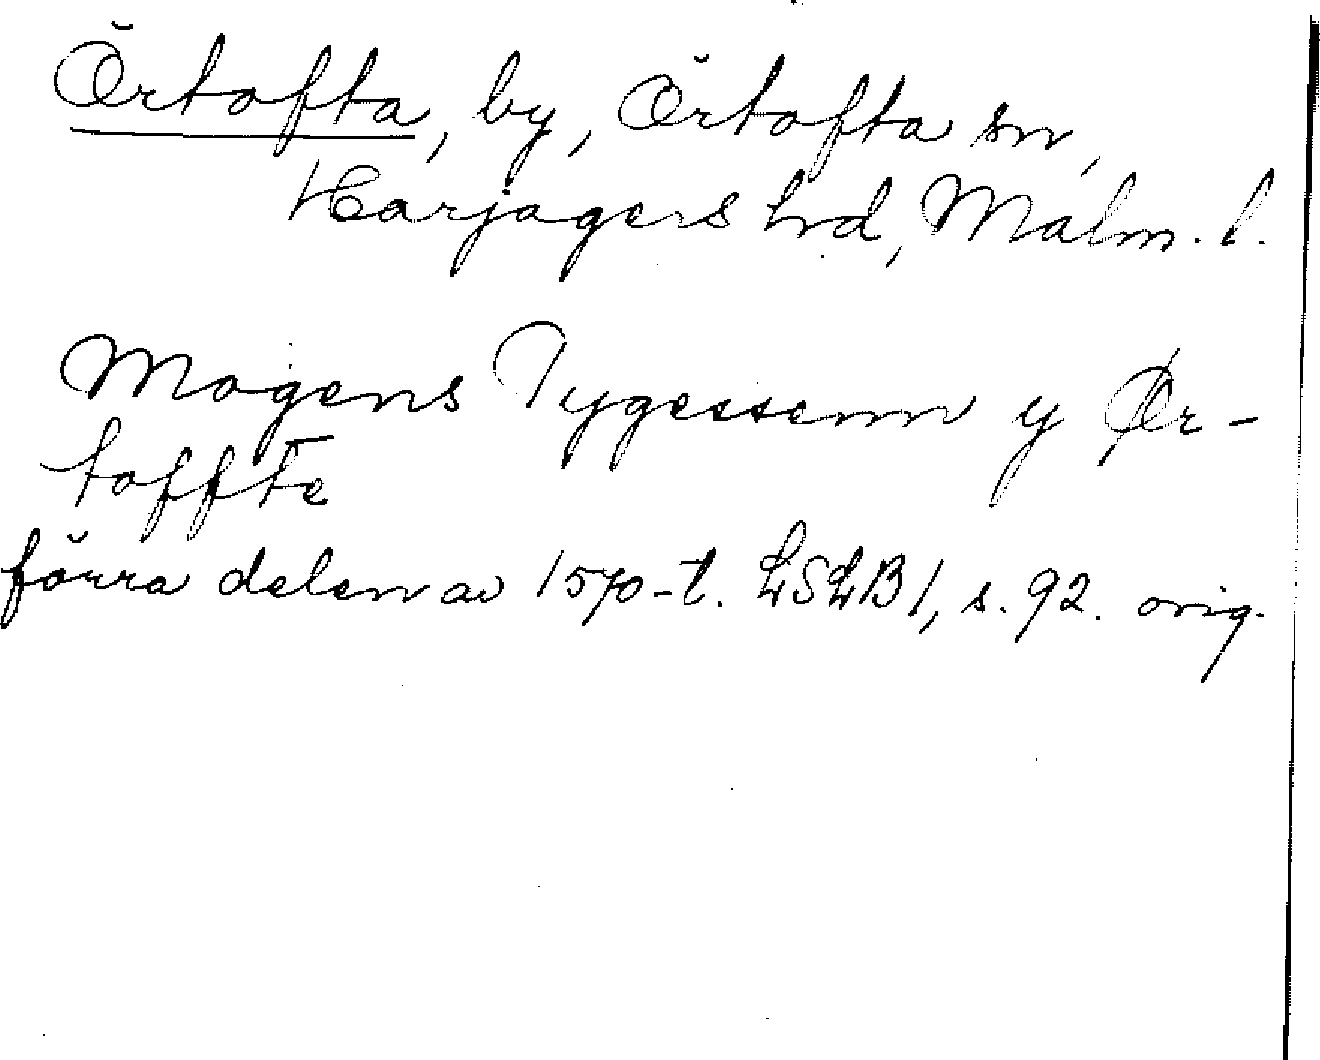 Örtofta, by, Örtofta sn,
Harjagers hrd, Malm. l.
Mogens Tygessenn y Ør-
toffte
förra delen av 1570-t. LSLB 1, s. 92. orig.